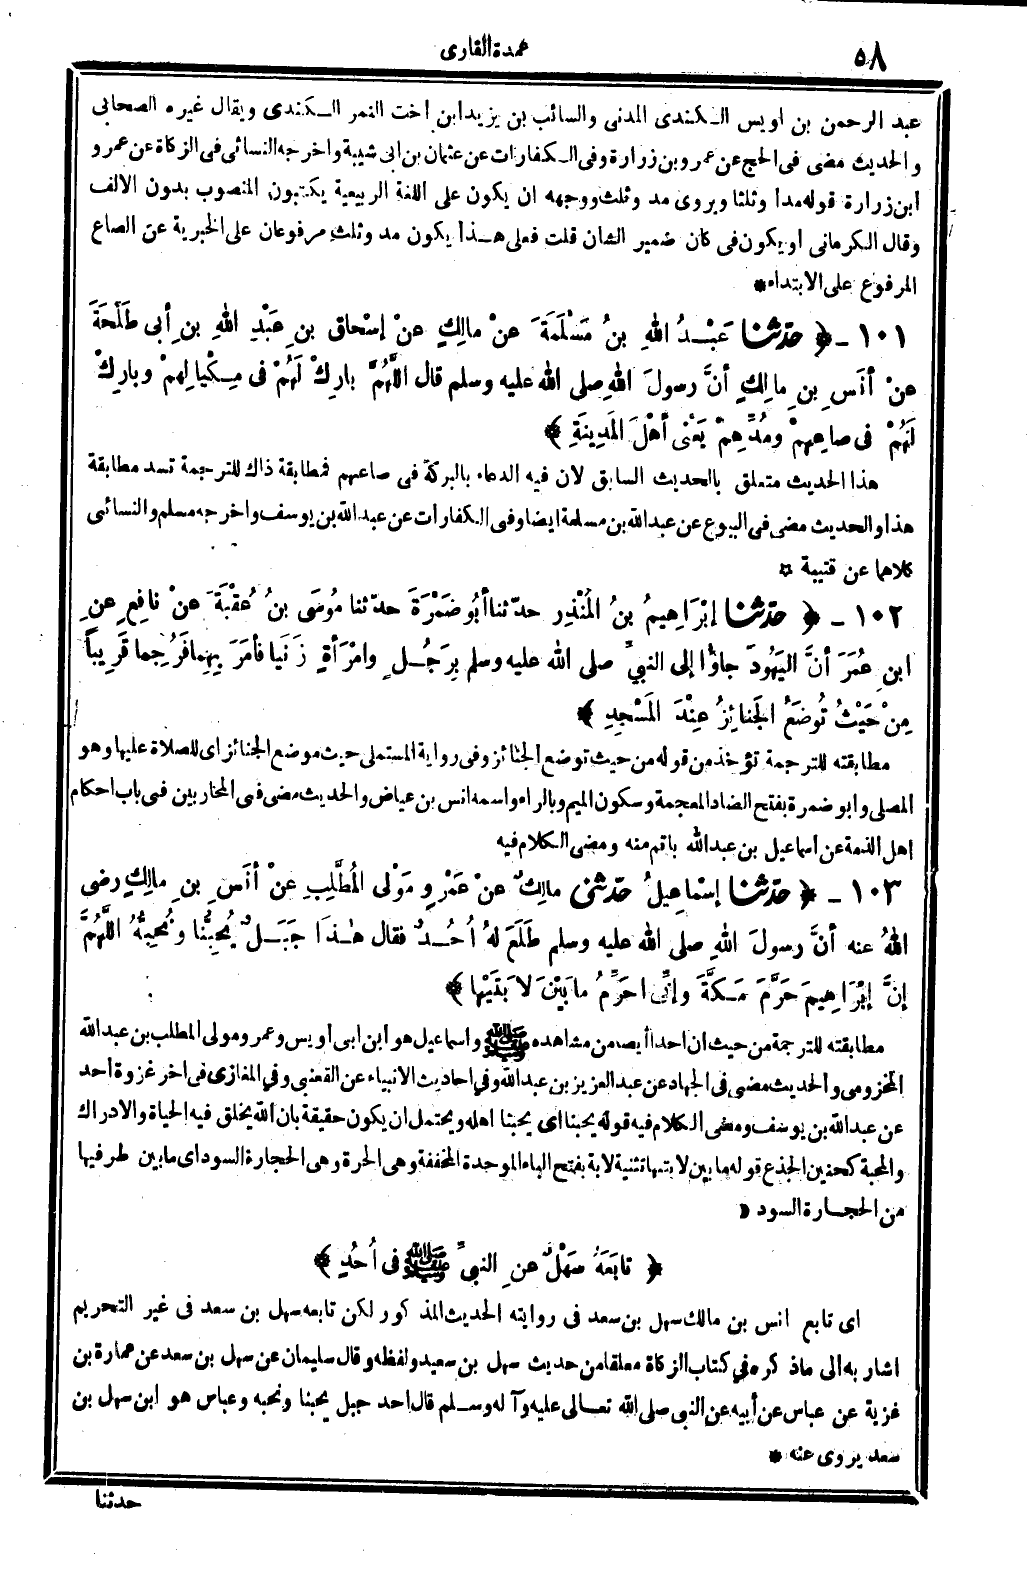 ٥٨
عمدة القارى
عبد الرحمن بن اويس الكندى المدنى والسائب بن يزيد ابن اخت النمر الكندى ويقال غيره الصحابى
والحديث مضى فى الحج عن عمرو بن زرارة وفى الكفارات عن عثمان بن ابى شيبة واخرجه النسائى فى الزكاة عن عمرو
ابن زرارة قوله مدا وثلثا ويروى مد وثلث ووجهه ان يكون على اللغة الربيعية يكتبون المنصوب بدون الالف
وقال الكرمانى او يكون فى كان ضمير الشان قلت فعلى هذا يكون مد وثلث مرفوعان على الخبرية عن الصاع
المرفوع على الابتداء *
١٠١ - ﴿ حدّثنا عَبْدُ اللهِ بنُ مَسْلَمَةَ عنْ مالِكٍ عنْ إسْحاق بنِ عَبْدِ اللهِ بنِ أبى طَلْحَةَ
عنْ أنَسِ بنِ مالِكٍ أنَّ رسولَ اللهِ صلى الله عليه وسلم قال اللَّهُمَّ بارِكْ لَهُمْ فى مِكْيالِهِمْ وبارِكْ
لَهُمْ فى صاعِهِمْ ومُدِّهِمْ يَعْنى أهْلَ المَدِينَةِ ﴾
هذا الحديث متعلق بالحديث السابق لان فيه الدعاء بالبركة فى صاعهم فمطابقة ذاك للترجمة تسد مطابقة
هذا والحديث مضى فى البيوع عن عبدالله بن مسلمة ايضا وفى الكفارات عن عبدالله بن يوسف واخرجه مسلم والنسائى
كلاهما عن قتيبة *
١٠٢ - ﴿ حدّثنا إبْرَاهِيمُ بنُ المُنْذِرِ حدّثنا أبُو ضَمْرَةَ حدّثنا مُوسَى بنُ عُقْبَةَ عنْ نافِعٍ عنِ
ابنِ عُمَرَ أنَّ اليَهُودَ جاؤُا إلى النبىِّ صلى الله عليه وسلم بِرَجُلٍ وامْرَأةٍ زَنَيا فأمَرَ بِهِما فَرُجِما قَرِيباً
مِنْ حَيْثُ تُوضَعُ الجَنائِزُ عِنْدَ المَسْجِدِ ﴾
مطابقته للترجمة تؤخذ من قوله من حيث توضع الجنائز وفى رواية المستملى حيث موضع الجنائز اى للصلاة عليها وهو
المصلى وابو ضمرة بفتح الضاد المعجمة وسكون الميم وبالراء واسمه انس بن عياض والحديث مضى فى المحاربين فى باب احكام
اهل الذمة عن اسماعيل بن عبدالله باتم منه ومضى الكلام فيه
١٠٣ - ﴿ حدّثنا إسْماعِيلُ حدّثنى مالِكٌ عنْ عَمْرٍو مَوْلى المُطَّلِبِ عنْ أنَسِ بنِ مالِكٍ رضى
اللهُ عنه أنَّ رسولَ اللهِ صلى الله عليه وسلم طَلَعَ لهُ أُحُدٌ فقال هٰذَا جَبَلٌ يُحِبُّنا ونُحِبُّهُ اللَّهُمَّ
إنَّ إبْرَاهِيمَ حَرَّمَ مَكَّةَ وإنِّى احَرِّمُ ما بَيْنَ لابَتَيْها ﴾
مطابقته للترجمة من حيث ان احدا أيضا من مشاهده ﷺ واسماعيل هو ابن ابى اويس وعمرو مولى المطلب بن عبدالله
المخزومى والحديث مضى فى الجهاد عن عبد العزيز بن عبدالله وفى احاديث الانبياء عن القعنبى وفى المغازى فى اخر غزوة احد
عن عبدالله بن يوسف ومضى الكلام فيه قوله يحبنا اى يحبنا اهله ويحتمل ان يكون حقيقة بان الله يخلق فيه الحياة والادراك
والمحبة كحنين الجذع قوله ما بين لابتيها تثنية لابة بفتح الباء الموحدة المخففة وهى الحرة وهى الحجارة السود اى ما بين طرفيها
من الحجارة السود *
﴿ تابَعَهُ سَهْلٌ عنِ النبىِّ ﷺ فى أُحُدٍ ﴾
اى تابع انس بن مالك سهل بن سعد فى روايته الحديث المذكور لكن تابعه سهل بن سعد فى غير التحريم
اشار به الى ماذكره فى كتاب الزكاة معلقا من حديث سهل بن سعيد ولفظه وقال سليمان عن سهل بن سعد عن عمارة بن
غزية عن عباس عن أبيه عن النبى صلى الله تعالى عليه وآله وسلم قال احد جبل يحبنا ونحبه وعباس هو ابن سهل بن
سعد يروى عنه *
حدثنا